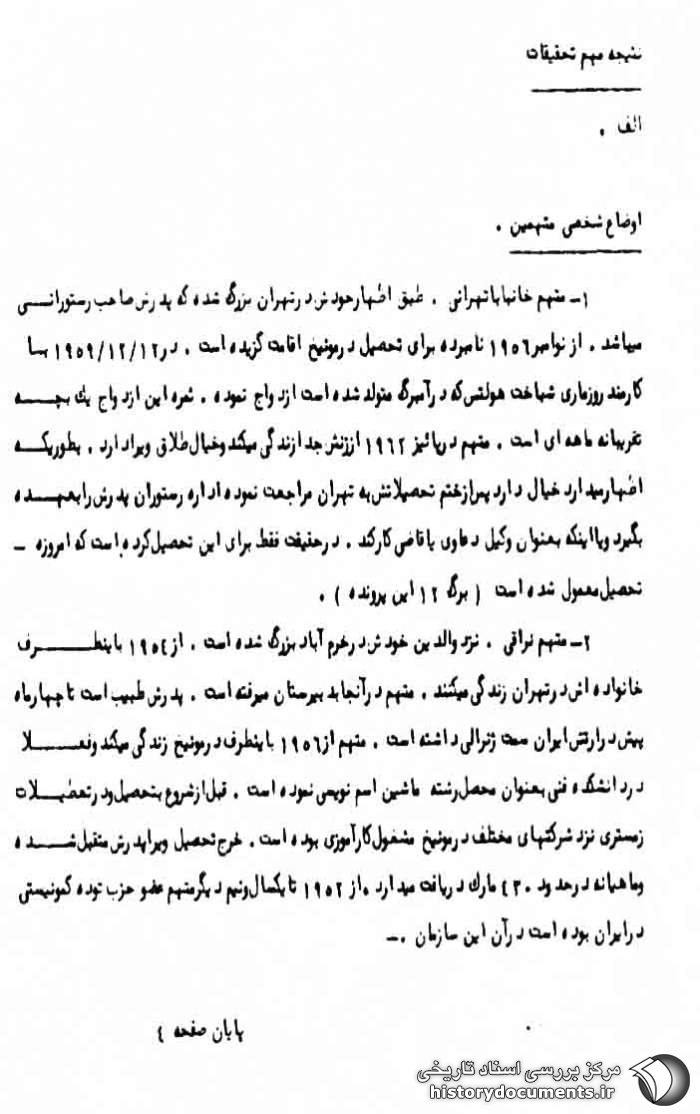 نتیجه مهم تحقیقات
الف .
اوضاع شخصی متهمین .
۱- متهم خانبابا تهرانی . طبق اظهار خودش در تهران بزرگ شده که پدرش صاحب رستورانی
میباشد . از نوامبر ۱۹۵۶ نامبرده برای تحصیل در مونیخ اقامت گزیده است . در ۱۹۵۹/۱۲/۱۲ با
کارمند روزماری شباخت هولتس که در آمبرگ متولد شده است ازدواج نموده . ثمره این ازدواج یك بچه
تقریبا نه ماهه ای است . متهم در پائیز ۱۹۶۲ از زنش جدا زندگی میکند و خیال طلاق ویرا دارد . بطوریکه
اظهار میدارد خیال دارد پس از ختم تحصیلاتش به تهران مراجعت نموده اداره رستوران پدرش را بعهده
بگیرد ویا اینکه بعنوان وکیل دعاوی یا قاضی کار کند . در حقیقت فقط برای این تحصیل کرده است که امروزه -
تحصیل معمول شده است ( برگ ۱۲ این پرونده ) .
۲- متهم نراقی . نزد والدین خودش در خرم آباد بزرگ شده است . از ۱۹۵۴ باینطرف
خانواده اش در تهران زندگی میکنند . متهم در آنجا بدبیرستان میرفته است . پدرش طبیب است تا چهار ماه
پیش در ارتش ایران سمت ژنرالی داشته است . متهم از ۱۹۵۶ باینطرف در مونیخ زندگی میکند وفعلا
در دانشکده فنی بعنوان محصل رشته ماشین اسم نویسی نموده است . قبل از شروع بتحصیل ودر تعطیلات
زمستری نزد شرکتهای مختلف در مونیخ مشغول کارآموزی بوده است . خرج تحصیل ویرا پدرش متقبل شده
وماهیانه در حدود ۴۳۰ مارك دریافت میدارد . از ۱۹۵۲ تا یکسال ونیم دیگر متهم عضو حزب توده کمونیستی
در ایران بوده است در آن این سازمان .-
پایان صفحه ۴
مرکز بررسی اسناد تاریخی
historydocuments.ir